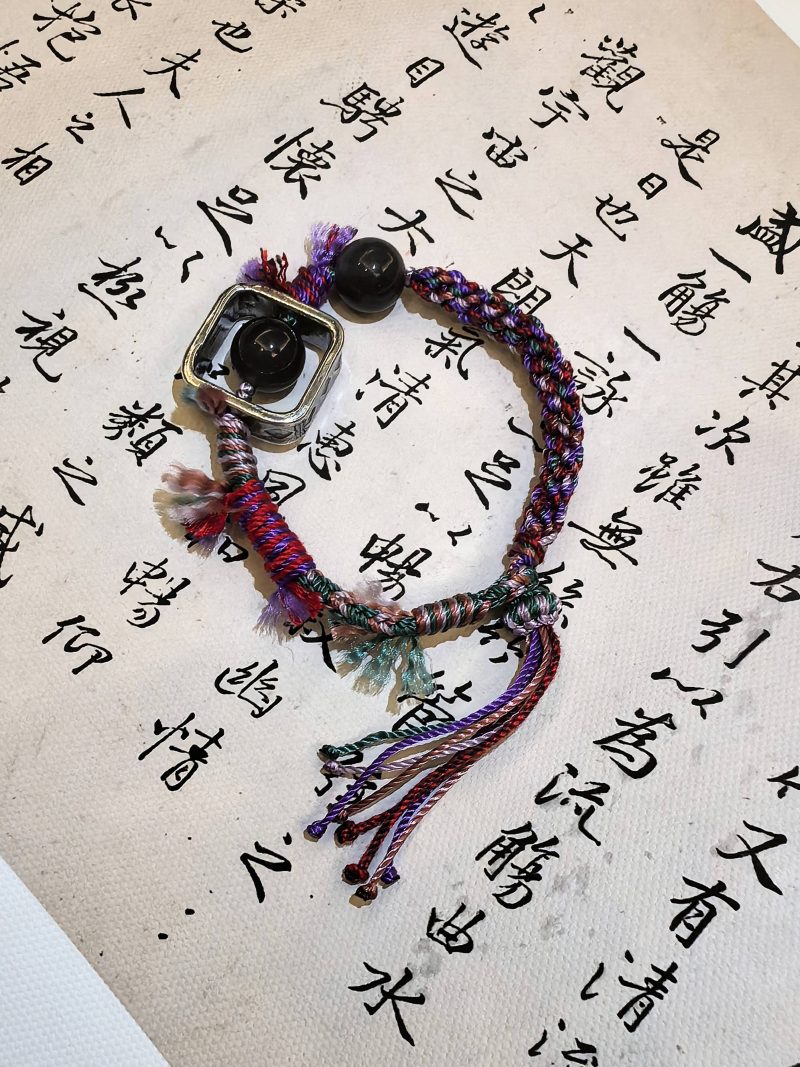 又有清流
右引以為流觴曲水
其次雖無絲管弦之
盛一觴一詠足以暢敘幽情
是日也天朗氣清惠風和暢仰
觀宇宙之大類之盛
遊目騁懷足以極視
也夫人之相
抱悟